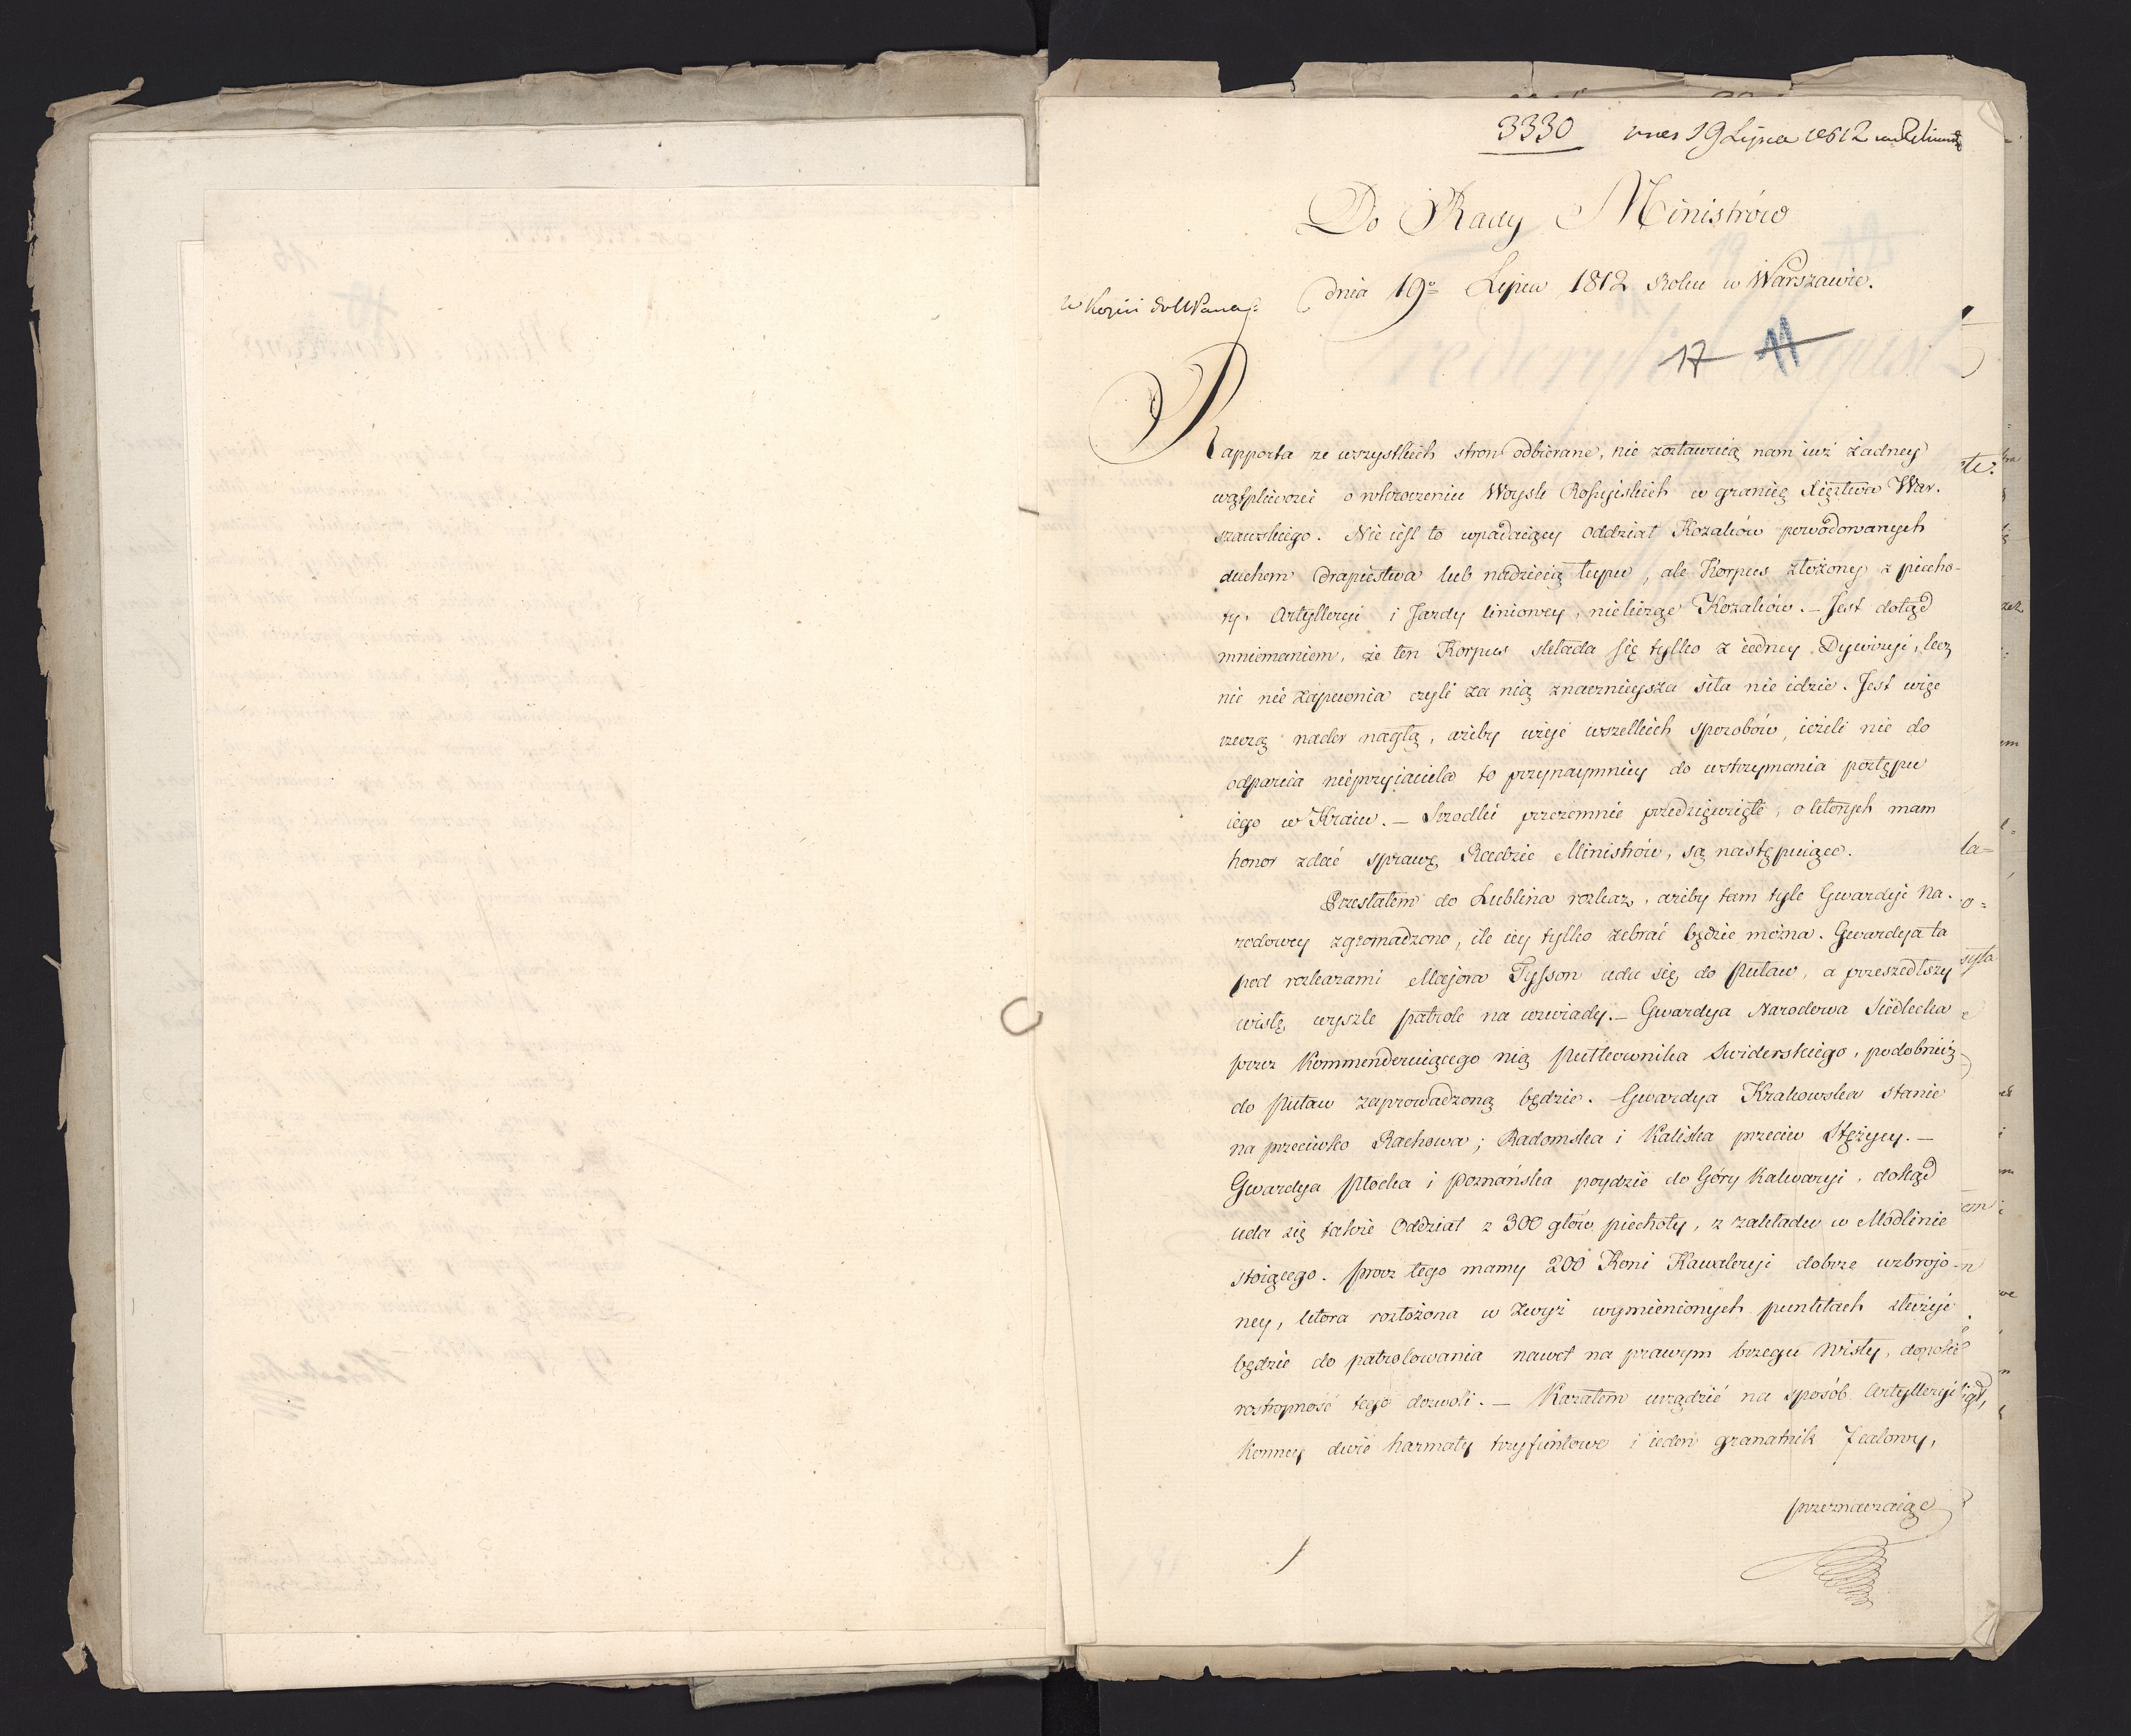 3330 19 Lipca 1812
Do Rady Ministrów
dnia 19º Lipca 1812 Roku w Warszawie.
w Kopii
17 11
Rapporta ze wszystkich stron odbierane, nie zostawuią nam iuż żadney
wątpliwości o wkroczeniu Woysk Rossyiskich w granicę Xięztwa War-
szawskiego. Nie iest to wpadaiący oddział Kozaków powodowanych
duchem drapiestwa lub nadzieią łupu, ale Korpus złożony z piecho-
ty, Artylleryi i Jazdy liniowey, nielicząc Kozaków. – Jest dotąd
mniemaniem, że ten Korpus składa się tylko z iedney Dywizyi, lecz
nic nie zapewnia czyli za nią znacznieysza siła nie idzie. Jest więc
rzeczą nader nagłą, ażeby użyć wszelkich sposobów, ieżeli nie do
odparcia nieprzyiaciela to przynaymniey do wstrzymania postępu
iego w Kraiu. – Srodki przezemnie przedsięwzięte, o których mam
honor zdać sprawę Radzie Ministrów, są następuiące.
Przesłałem do Lublina rozkaz, ażeby tam tyle Gwardyi Na-
rodowey zgromadzono, ile iey tylko zebrać będzie można. Gwardya ta
pod rozkazami Majora Tysson uda się do Puław, a przeszedłszy
wisłę wyszle patrole na wzwiady. – Gwardya Narodowa Siedlecka
przez Kommenderuiącego nią Pułkownika Swiderskiego, podobnież
do Puław zaprowadzoną będzie. Gwardya Krakowska stanie
na przeciwko Rachowa; Radomska i Kaliska przeciw Stężycy. –
Gwardya Płocka i Poznańska poydzie do Góry Kalwaryi, dokąd
uda się także Oddział z 300 głów piechoty, z zakładu w Modlinie
stoiącego. Prócz tego mamy 200 Koni Kawaleryi dobrze uzbrojo-
ney, która rozłożona w zwyż wymienionych punktach służyć
będzie do patrolowania nawet na prawym brzegu Wisły, dopokié
roztropność tego dozwoli. – Kazałem urządzić na sposób Artylleryi
Konney dwie harmaty trzyfuntowe i ieden granatnik 7calowy,
przeznaczaiąc